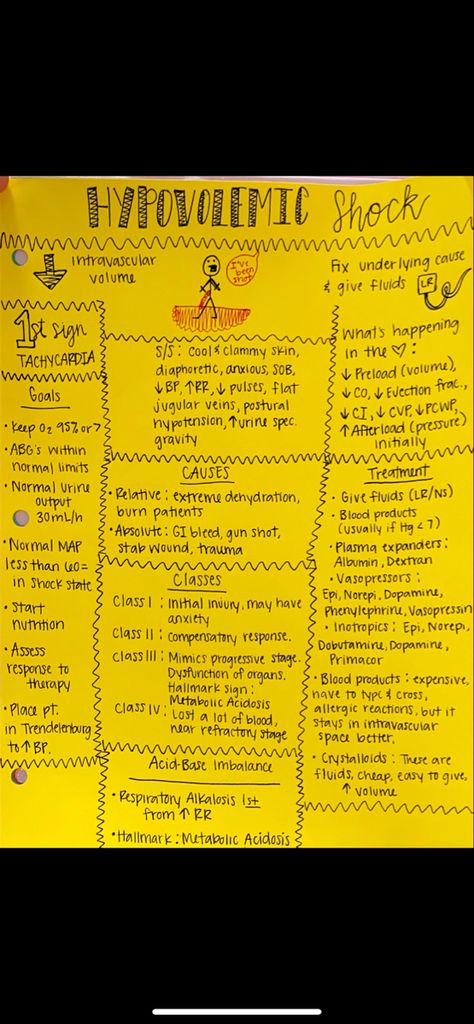 HYPOVOLEMIC Shock
↓ intravascular
volume
I've
been
shot
Fix underlying cause
& give fluids LR
1st sign
TACHYCARDIA
Goals
• keep O2 95% or >
• ABG's within
normal limits
• Normal urine
output
30mL/h
• Normal MAP
less than 60=
in shock state
• Start
nutrition
• Assess
response to
therapy
• Place pt.
in Trendelenburg
to ↑ BP.
S/S: Cool & clammy skin,
diaphoretic, anxious, SOB,
↓ BP, ↑ RR, ↓ pulses, flat
jugular veins, postural
hypotension, ↑ urine spec.
gravity
CAUSES
• Relative: extreme dehydration,
burn patients
• Absolute: GI bleed, gun shot,
stab wound, trauma
Classes
Class I: Initial injury, may have
anxiety
Class II: Compensatory response.
Class III: Mimics progressive stage.
Dysfunction of organs.
Hallmark sign:
Metabolic Acidosis
Class IV: Lost a lot of blood,
near refractory stage
Acid-Base Imbalance
• Respiratory Alkalosis 1st
from ↑ RR
• Hallmark: Metabolic Acidosis
What's happening
in the ♡:
↓ Preload (volume),
↓ CO, ↓ Ejection frac.,
↓ CI, ↓ CVP, ↓ PCWP,
↑ Afterload (pressure)
initially
Treatment
• Give fluids (LR/NS)
• Blood products
(usually if Hg < 7)
• Plasma expanders:
Albumin, Dextran
• Vasopressors:
Epi, Norepi, Dopamine,
Phenylephrine, Vasopressin
• Inotropics: Epi, Norepi,
Dobutamine, Dopamine,
Primacor
• Blood products: expensive,
have to type & cross,
allergic reactions, but it
stays in intravascular
space better.
• Crystalloids: These are
fluids, cheap, easy to give,
↑ volume